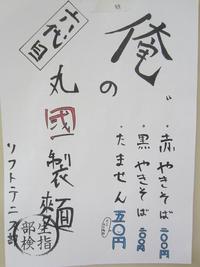 俺の
六代目
丸國製麺
・赤やきそば 二〇〇円
・黒やきそば 二〇〇円
・たません 五〇円
ソフトテニス部
生指
部検